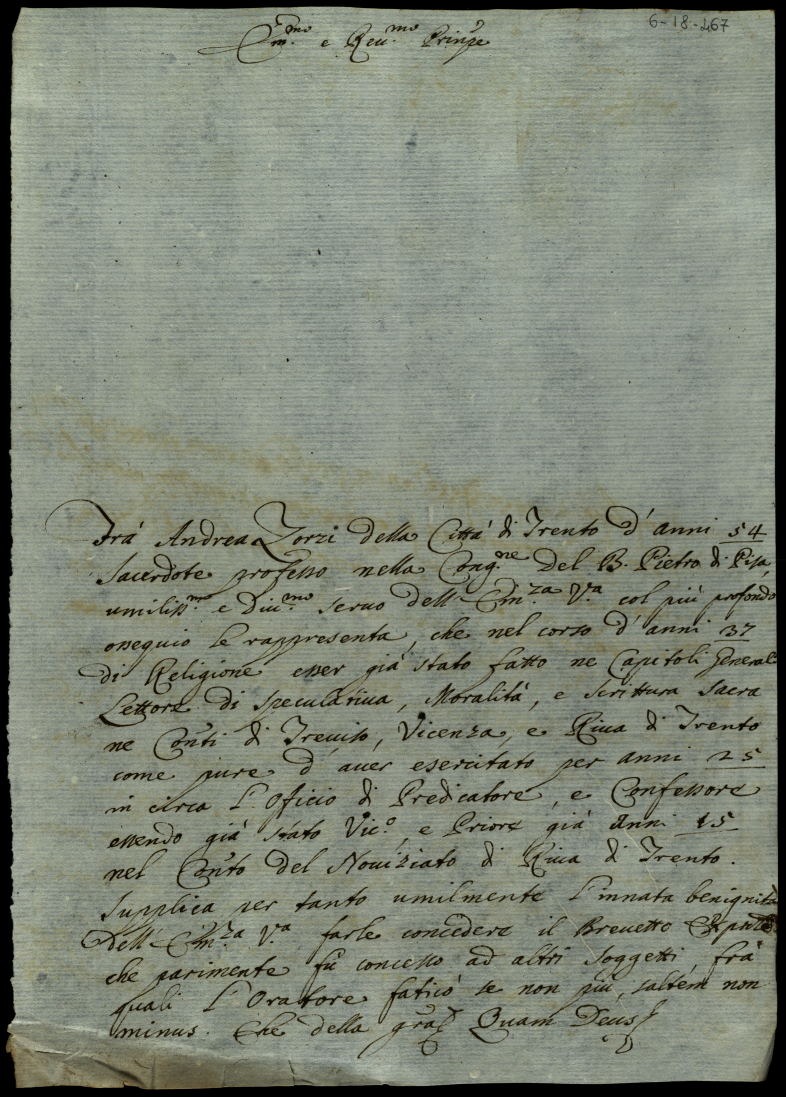 6-18-467
Em.mo e Reu.mo Prinpe
Frà Andrea Zorzi della Città di Trento d'anni 54
Sacerdote professo nella Cong.ne del B. Pietro di Pisa,
umiliss.mo e Diu.mo seruo dell'Em.za V.a col più profondo
ossequio le rappresenta, che nel corso d'anni 37
di Religione esser già stato fatto ne Capitoli Generali
Lettore di speculatiua, Moralità, e Scrittura Sacra
ne Conti di Treuiso, Vicenza, e Riua di Trento
come pure d'auer esercitato per anni 25
in circa l'Officio di Predicatore, e Confessore
essendo già stato Vic.o e Priore già anni 15
nel Conto del Nouiziato di Riua di Trento.
Supplica per tanto umilmente l'innata benignità
dell'Em.za V.a farle concedere il Breuetto
che parimente fù concesso ad altri Soggetti frà
quali l'Oratore faticò se non più, saltem non
minus. Che della gra Quam Deus